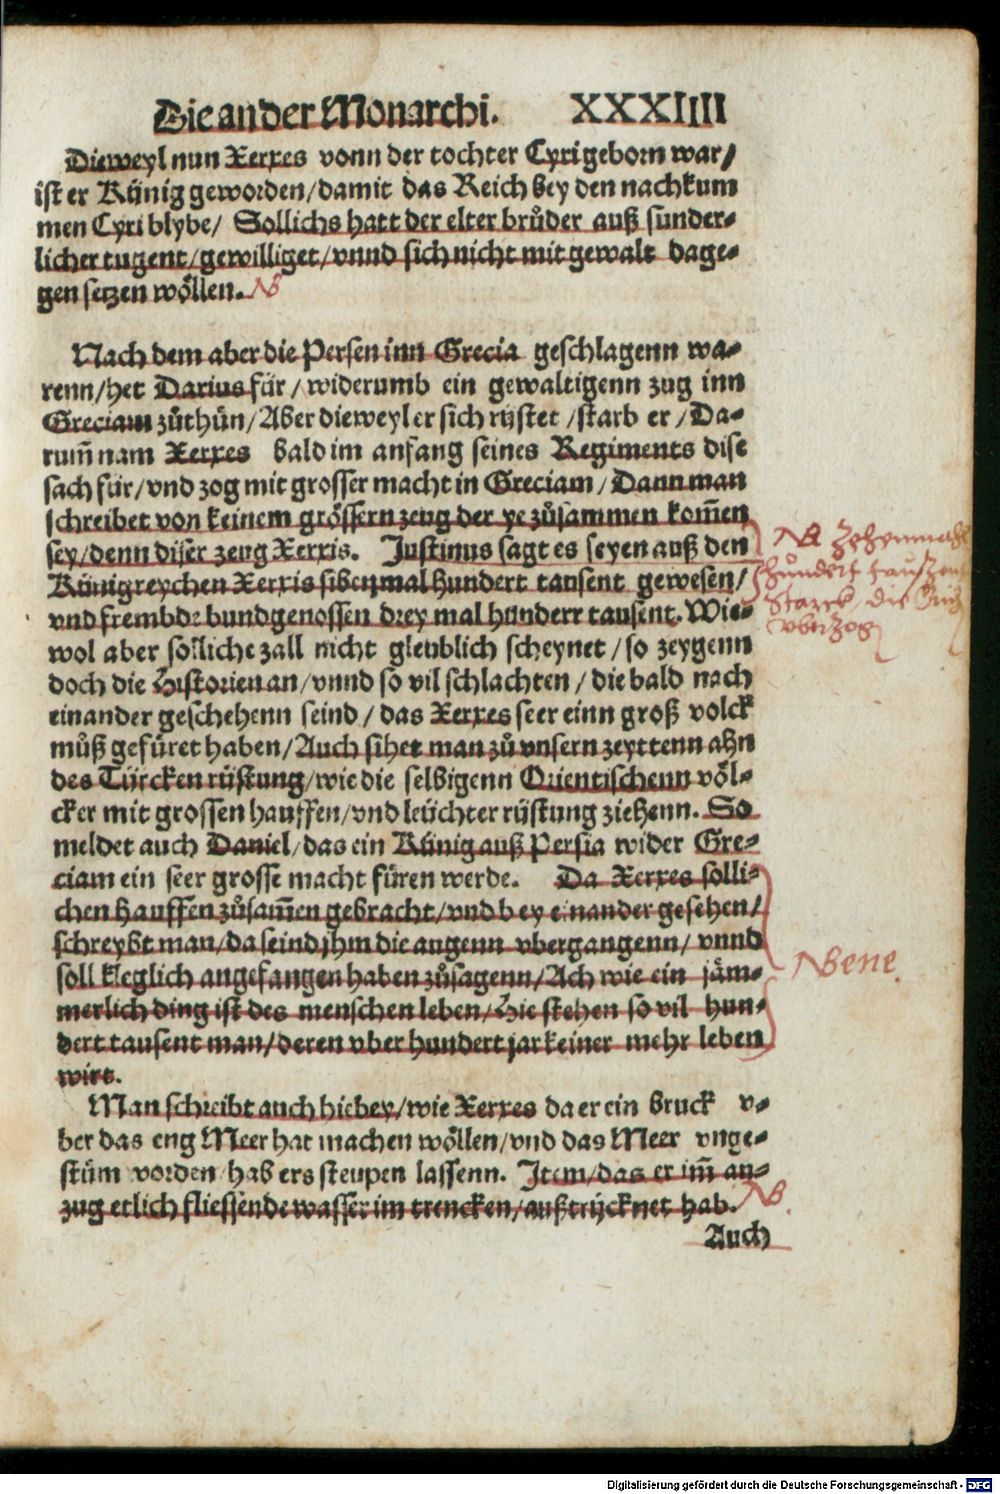 Die ander Monarchi. XXXIIII
Dieweyl nun Xerxes vonn der tochter Cyri geborn war/
ist er Künig geworden/damit das Reich bey den nachkum
men Cyri blybe/ Sollichs hatt der elter brůder auß sunder-
licher tugent/gewilliget/vnnd sich nicht mit gewalt dage-
gen setzen wöllen. NB
Nach dem aber die Persen inn Grecia geschlagenn wa-
renn/het Darius für/widerumb ein gewaltigenn zug inn
Greciam zůthůn/Aber dieweyl er sich rüstet/starb er/Da-
rum̄ nam Xerxes bald im anfang seines Regiments dise
sach für/vnd zog mit grosser macht in Greciam/Dann man
schreibet von keinem grössern zeug der ye zůsammen kom̄en
sey/denn diser zeug Xerxis. Justinus sagt es seyen auß den
Künigreychen Xerxis sibenmal hundert tausent gewesen/
vnd frembde bundgenossen drey mal hundert tausent. Wie-
wol aber sölliche zall nicht gleublich scheynet/so zeygenn
doch die Historien an/vnnd so vil schlachten/die bald nach
einander geschehenn seind/das Xerxes seer einn groß volck
můß gefüret haben/Auch sihet man zů vnsern zeyttenn ahn
des Türcken rüstung/wie die selbigenn Orientischenn völ-
cker mit grossen hauffen/vnd leüchter rüstung ziehenn. So
meldet auch Daniel/das ein Künig auß Persia wider Gre-
ciam ein seer grosse macht füren werde. Da Xerxes solli-
chen hauffen zůsam̄en gebracht/vnd bey einander gesehen/
schreybt man/da seind jhm die augenn vbergangenn/vnnd
soll kleglich angefangen haben zůsagenn/Ach wie ein jäm-
merlich ding ist des menschen leben/Hie stehen so vil hun-
dert tausent man/deren vber hundert jar keiner mehr leben
wirt.
Man schreibt auch hiebey/wie Xerxes da er ein bruck v-
ber das eng Meer hat machen wöllen/vnd das Meer vnge-
stüm worden/hab ers steupen lassenn. Item/das er im̄ an-
zug etlich fliessende wasser im trencken/außtrücknet hab. NB.
Auch
NB Zehenmahl
hundert tauszent
Starck die
vberzog
NBene.
Digitalisierung gefördert durch die Deutsche Forschungsgemeinschaft - DFG